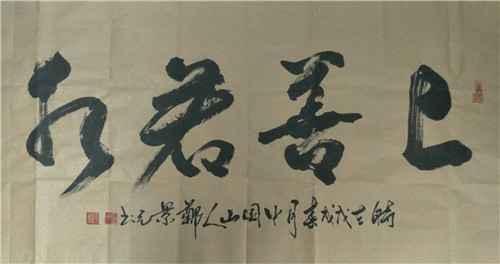 上善若水
时在戊戌春月中国山人郑景元书